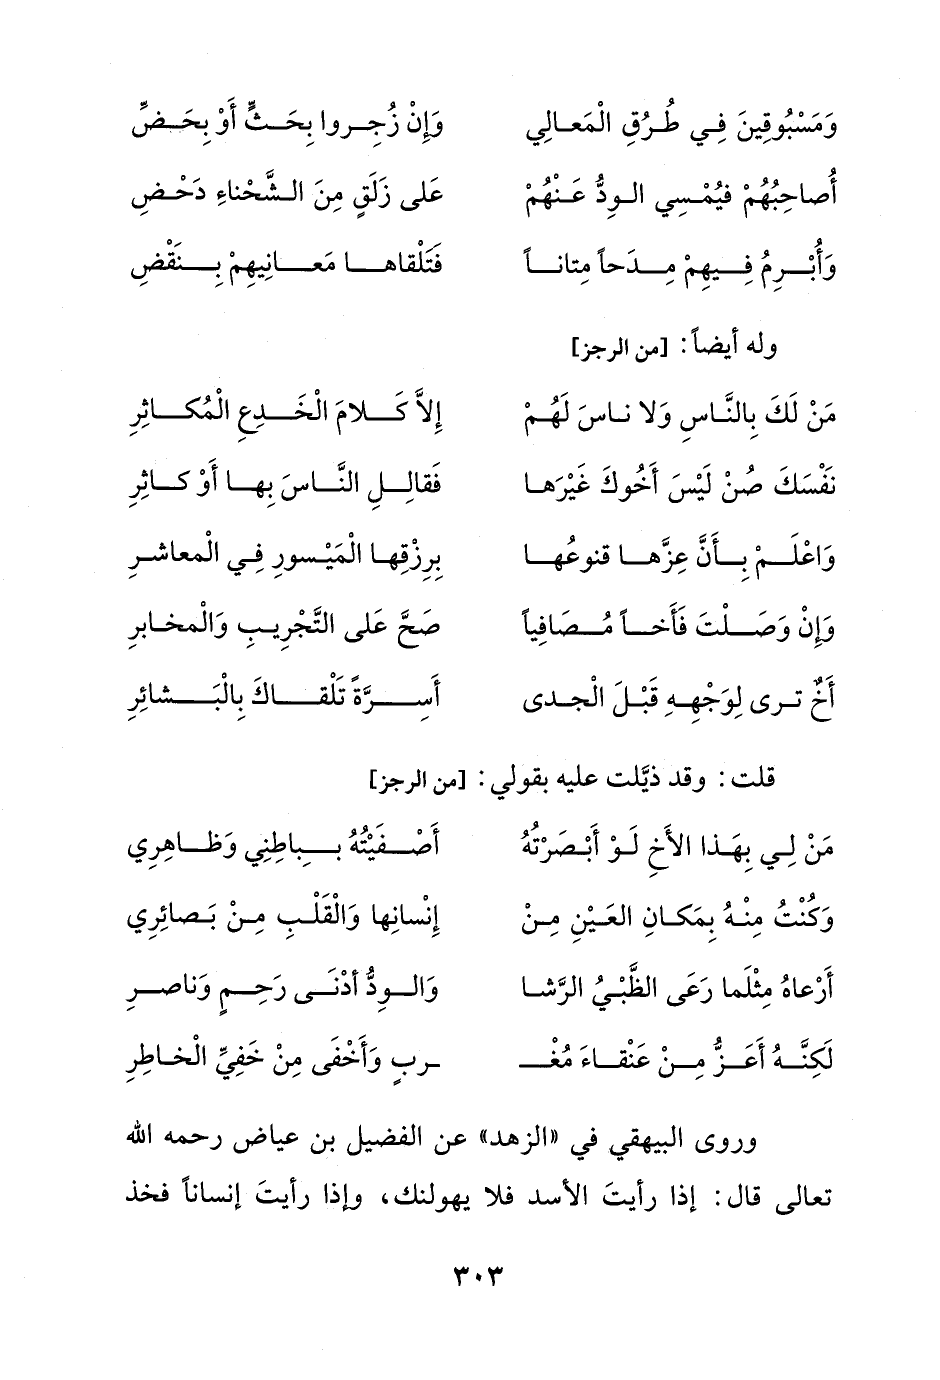 وَمَسْبُوقِينَ فِي طُرُقِ الْمَعالِي وَإِنْ زُجِروا بِحَثٍّ أَوْ بِحَضِّ
أُصاحِبُهُمْ فَيُمْسِي الودُّ عَنْهُمْ عَلى زَلَقٍ مِنَ الشَّحْناءِ دَحْضِ
وَأُبْرِمُ فِيهِمْ مِدَحاً مِتاناً فَتَلْقاها مَعانِيهِمْ بِنَقْضِ
وله أيضاً: [من الرجز]
مَنْ لَكَ بِالنَّاسِ وَلا ناسَ لَهُمْ إِلاَّ كَلامَ الْخَدِعِ الْمُكاثِرِ
نَفْسَكَ صُنْ لَيْسَ أَخُوكَ غَيْرَها فَقالِلِ النَّاسَ بِها أَوْ كاثِرِ
وَاعْلَمْ بِأَنَّ عِزَّها قنوعُها بِرِزْقِها الْمَيْسورِ فِي الْمعاشرِ
وَإِنْ وَصَلْتَ فَأَخاً مُصَافِياً صَحَّ عَلى التَّجْرِيبِ وَالْمخابرِ
أَخٌ ترى لِوَجْهِهِ قَبْلَ الْجدى أَسِرَّةً تَلْقاكَ بِالْبَشائِرِ
قلت: وقد ذيَّلت عليه بقولي: [من الرجز]
مَنْ لِي بِهَذا الأَخِ لَوْ أَبْصَرْتُهُ أَصْفَيْتُهُ بِباطِنِي وَظاهِرِي
وَكُنْتُ مِنْهُ بِمَكانِ العَيْنِ مِنْ إِنْسانِها وَالْقَلْبِ مِنْ بَصائِرِي
أَرْعاهُ مِثْلَما رَعَى الظَّبْيُ الرَّشا وَالودُّ أَدْنَى رَحِمٍ وَناصرِ
لَكِنَّهُ أَعَزُّ مِنْ عَنْقاءَ مُغْـ ـربٍ وَأَخْفَى مِنْ خَفِيِّ الْخاطِرِ
وروى البيهقي في «الزهد» عن الفضيل بن عياض رحمه الله
تعالى قال: إذا رأيتَ الأسد فلا يهولنك، وإذا رأيتَ إنساناً فخذ
٣٠٣